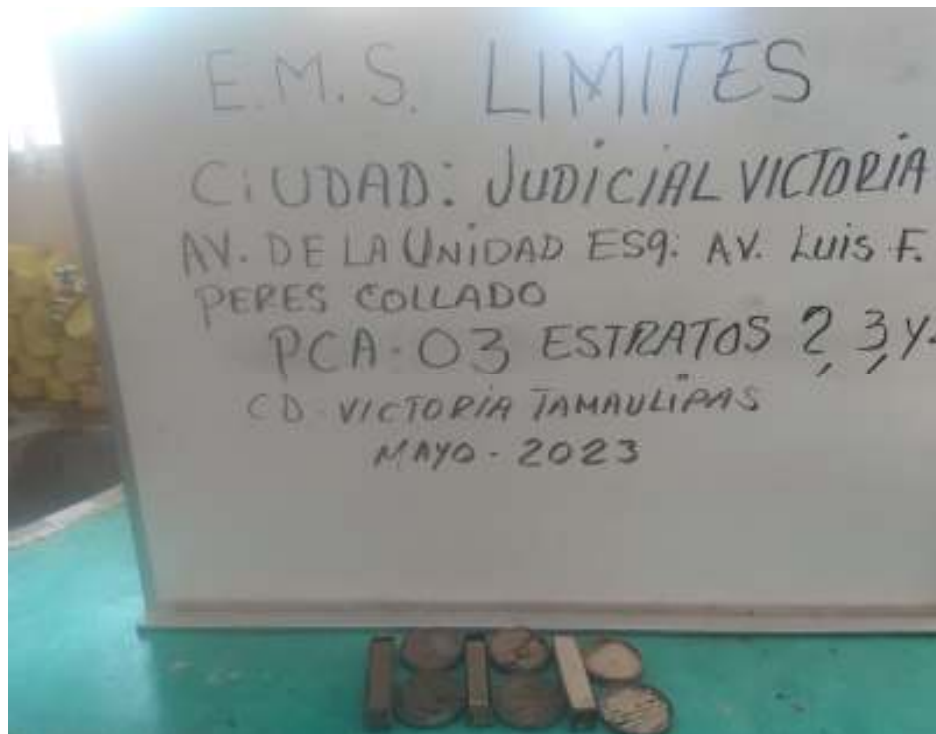 E.M.S. LIMITES
CiUDAD: JUDICIAL VICTORIA
AV. DE LA UNIDAD ESQ. AV. Luis F.
PERES COLLADO
PCA-03 ESTRATOS 2, 3, Y
CD. VICTORIA TAMAULIPAS
MAYO-2023